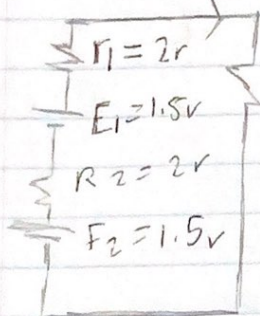 r1 = 2r
E1 = 1.5v
R2 = 2r
E2 = 1.5v